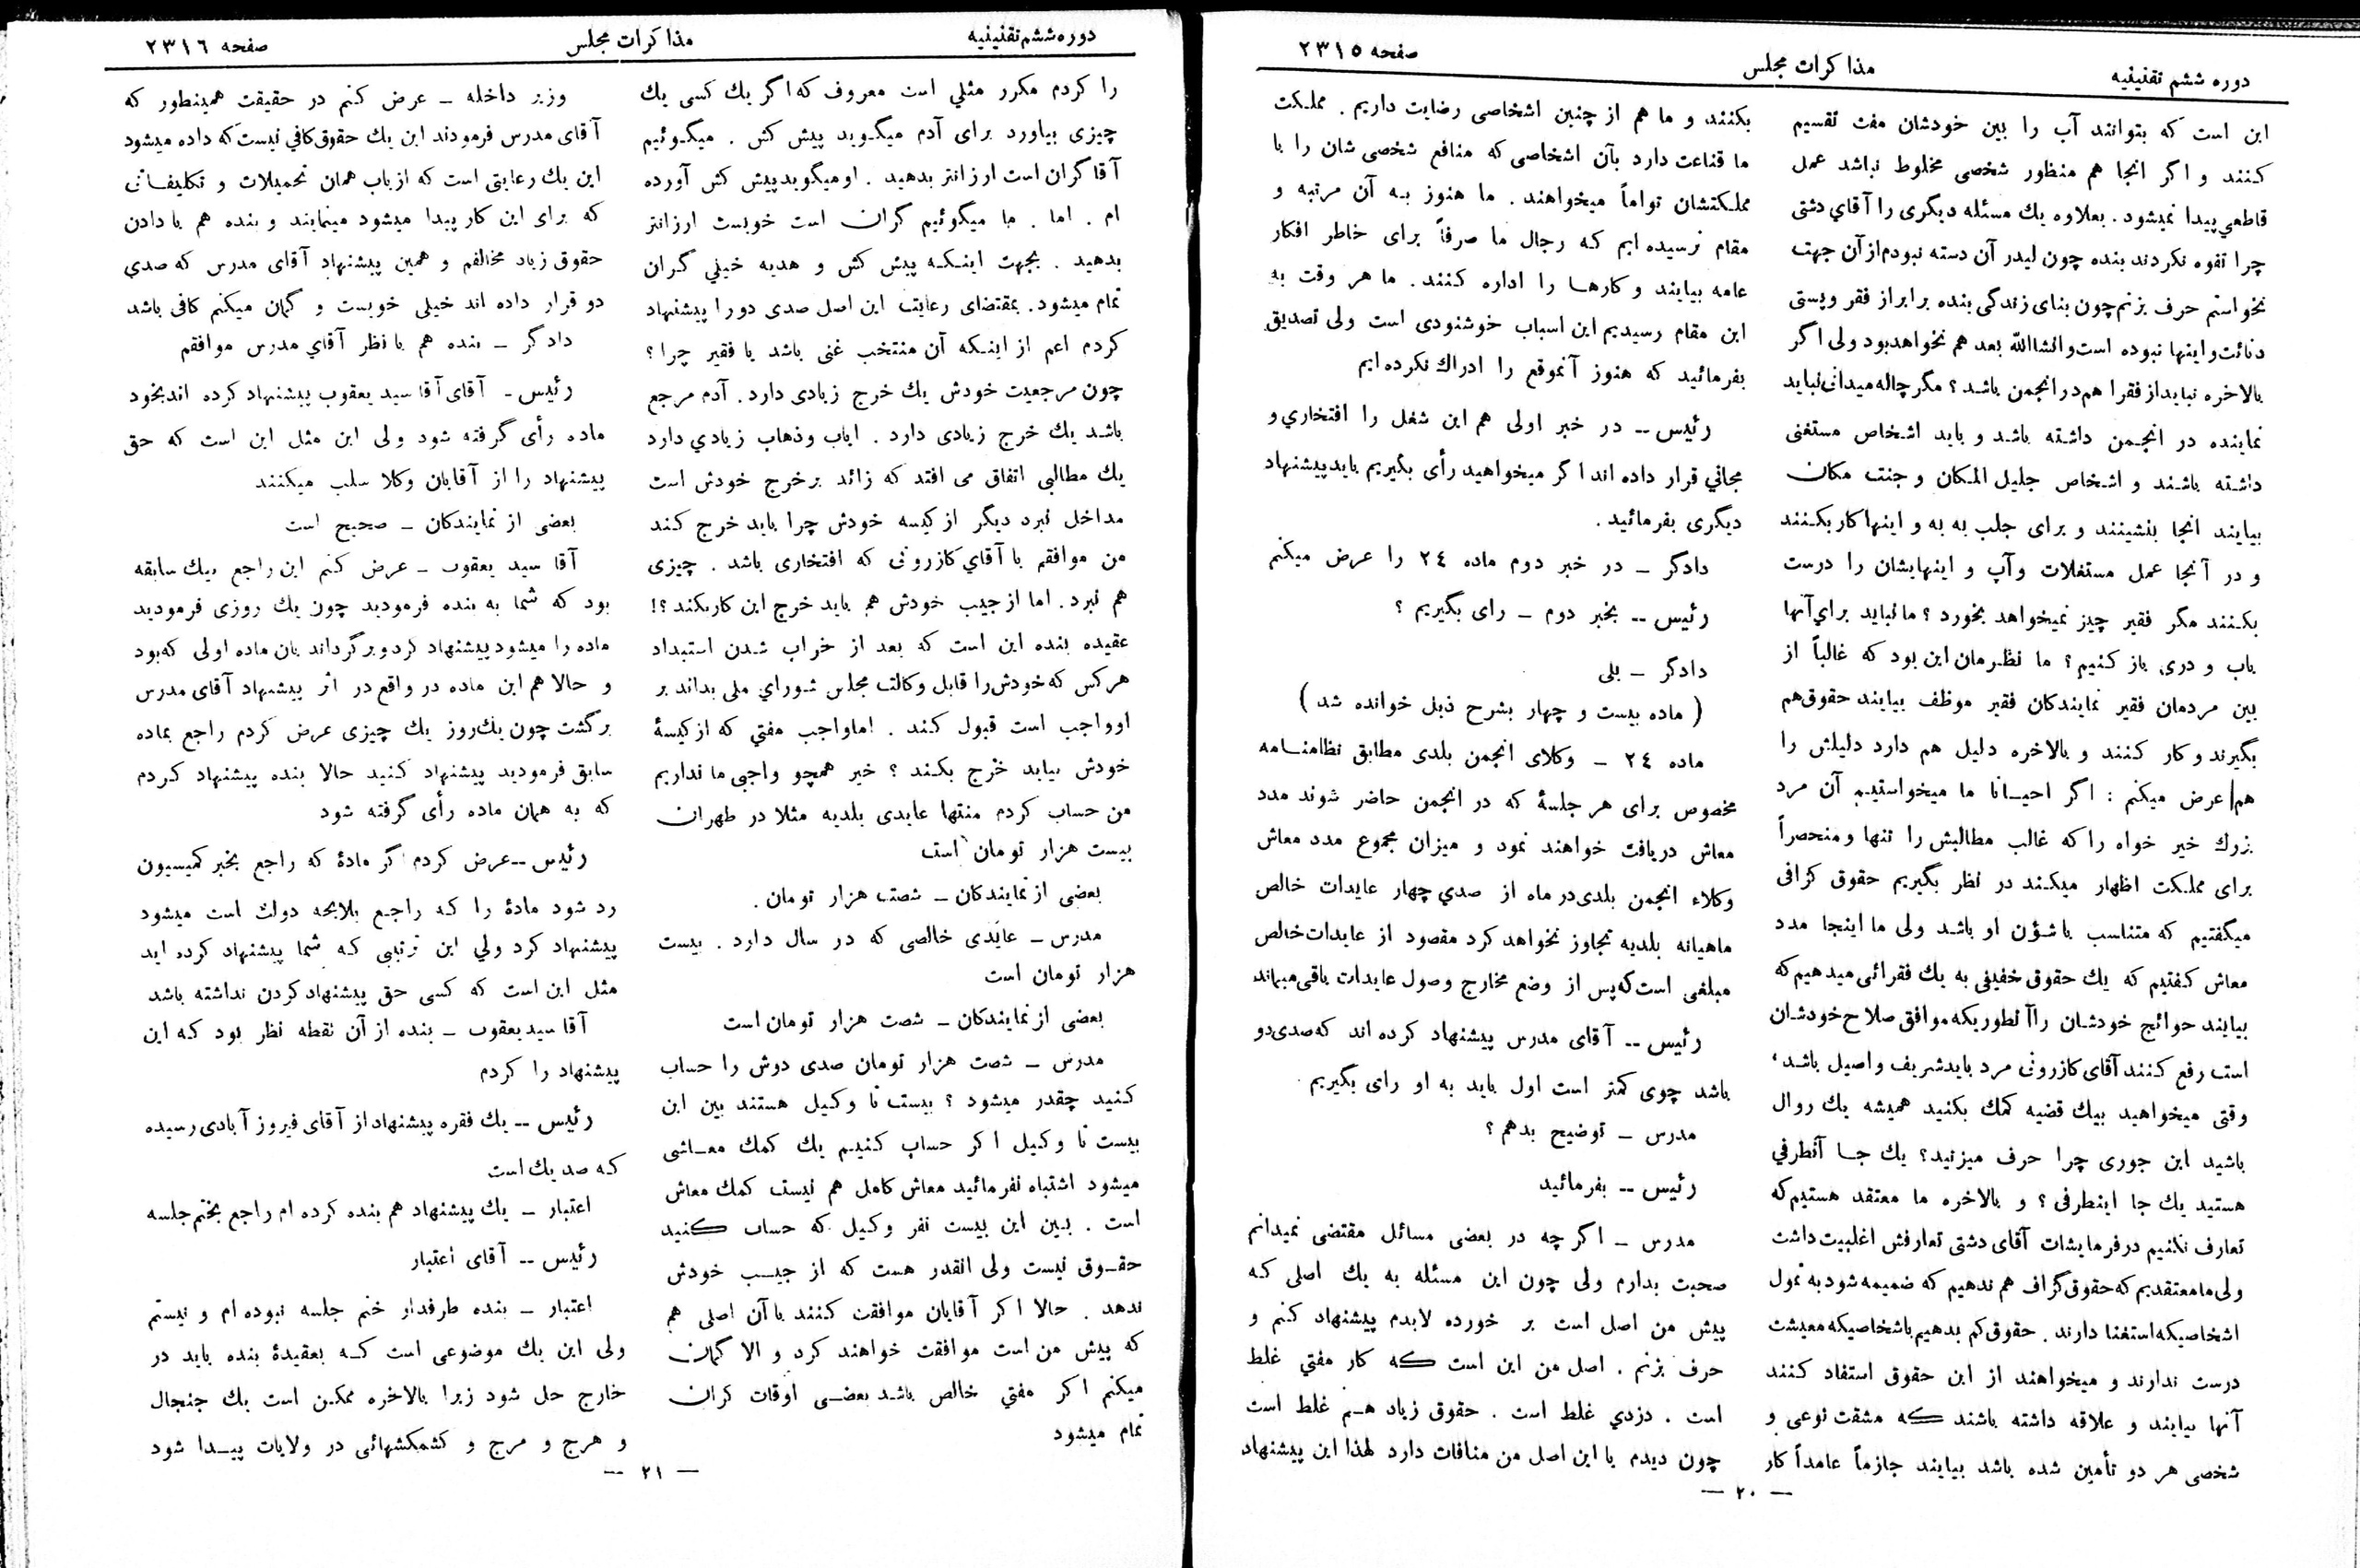 دوره ششم تقنینیه
مذاکرات مجلس
صفحه ۲۳۱۵
این است که بتوانند آب را بین خودشان مفت تقسیم
کنند و اگر انجا هم منظور شخصی مخلوط نباشد عمل
قاطعي پیدا نمیشود. بعلاوه یك مسئله دیگری را آقاي دشتی
چرا تفوه نکردند بنده چون لیدر آن دسته نبودم از آن جهت
نخواستم حرف بزنم چون بنای زندگی بنده برابر از فقر و پستی
دنائت و اینها نبوده است و انشاالله بعد هم نخواهد بود ولی اگر
بالاخره نباید از فقرا هم در انجمن باشد؟ مگر چاله میدانی نباید
نماینده در انجمن داشته باشد و باید اشخاص مستغنی
داشته باشند و اشخاص جلیل المکان و جنت مکان
بیایند انجا بنشینند و برای جلب به به و اینها کار بکنند
و در آنجا عمل مستغلات و آب و اینهایشان را درست
بکنند مگر فقیر چیز نمیخواهد بخورد؟ ما نباید براي آنها
باب و دری باز کنیم؟ ما نظرمان این بود که غالباً از
بین مردمان فقیر نمایندکان فقیر موظف بیایند حقوق هم
بگیرند و کار کنند و بالاخره دلیل هم دارد دلیلش را
هم عرض میکنم : اگر احیانا ما میخواستیم آن مرد
بزرك خیر خواه را که غالب مطالبش را تنها و منحصراً
برای مملکت اظهار میکند در نظر بگیریم حقوق کزافی
میگفتیم که متناسب با شؤن او باشد ولی ما اینجا مدد
معاش کفتیم که یك حقوق خفیفی به یك فقرائی میدهیم که
بیایند حوائج خودشان را آنطوریکه موافق صلاح خودشان
است رفع کنند آقای کازرونی مرد باید شریف و اصیل باشد،
وقتی میخواهید بیك قضیه کمك بکنید همیشه یك روال
باشید این جوری چرا حرف میزنید؟ یك جا آنطرفي
هستید یك جا اینطرفی؟ و بالاخره ما معتقد هستیم که
تعارف نکنیم در فرمایشات آقای دشتی تعارفش اغلبیت داشت
ولی ما معتقدیم که حقوق گزاف هم ندهیم که ضمیمه شود به تمول
اشخاصیکه استغنا دارند. حقوق کم بدهیم باشخاصیکه معیشت
درست ندارند و میخواهند از این حقوق استفاد کنند
آنها بیایند و علاقه داشته باشند که مشقت نوعی و
شخصی هر دو تأمین شده باشد بیایند جازماً عامداً کار
بکنند و ما هم از چنین اشخاصی رضایت داریم. مملکت
ما قناعت دارد بآن اشخاصی که منافع شخصی شان را با
مملکتشان تواماً میخواهند. ما هنوز به آن مرتبه و
مقام نرسیده ایم که رجال ما صرفاً برای خاطر افکار
عامه بیایند و کارها را اداره کنند. ما هر وقت به
این مقام رسیدیم این اسباب خوشنودی است ولی تصدیق
بفرمائید که هنوز آنموقع را ادراك نکرده ایم
رئیس -- در خبر اولی هم این شغل را افتخاري و
مجاني قرار داده اند اکر میخواهید رأی بگیریم باید پیشنهاد
دیگری بفرمائید.
دادگر – در خبر دوم ماده ۲۴ را عرض میکنم
رئیس -- بخبر دوم – رای بگیریم ؟
دادگر – بلی
( ماده بیست و چهار بشرح ذیل خوانده شد )
ماده ۲۴ – وکلای انجمن بلدی مطابق نظامنامه
مخصوص برای هر جلسهٔ که در انجمن حاضر شوند مدد
معاش دریافت خواهند نمود و میزان مجموع مدد معاش
وکلاء انجمن بلدی در ماه از صدي چهار عایدات خالص
ماهیانه بلدیه تجاوز نخواهد کرد مقصود از عایدات خالص
مبلغی است که پس از وضع مخارج وصول عایدات باقی میماند
رئیس -- آقای مدرس پیشنهاد کرده اند که صدی دو
باشد چوی کمتر است اول باید به او رای بگیریم .
مدرس – توضیح بدهم ؟
رئیس -- بفرمائید
مدرس – اکر چه در بعضی مسائل مقتضی نمیدانم
صحبت بدارم ولی چون این مسئله به یك اصلی که
پیش من اصل است بر خورده لابدم پیشنهاد کنم و
حرف بزنم . اصل من این است که کار مفتي غلط
است . دزدي غلط است . حقوق زیاد هم غلط است
چون دیدم با این اصل من منافات دارد لهذا این پیشنهاد
— ۲۰ —
دوره ششم تقنینیه
مذاکرات مجلس
صفحه ۲۳۱۶
را کردم مکرر مثلي است معروف که اگر یك کسی یك
چیزی بیاورد برای آدم میگوید پیش کش . میگوئیم
آقا گران است ارزانتر بدهید . او میگوید پیش کش آورده
ام . اما . ما میگوئیم گران است خوبست ارزانتر
بدهید . بجهت اینکه پیش کش و هدیه خیلي گران
تمام میشود. بمقتضای رعایت این اصل صدی دو را پیشنهاد
کردم اعم از اینکه آن منتخب غنی باشد یا فقیر چرا؟
چون مرجعیت خودش یك خرج زیادی دارد. آدم مرجع
باشد یك خرج زیادی دارد . ایاب و ذهاب زیادي دارد
یك مطالبی اتفاق می افتد که زائد برخرج خودش است
مداخل نبرد دیگر از کیسه خودش چرا باید خرج کند
من موافقم با آقاي کازرونی که افتخاری باشد . چیزی
هم نبرد. اما از جیب خودش هم باید خرج این کار بکند؟!
عقیده بنده این است که بعد از خراب شدن استبداد
هر کس که خودش را قابل وکالت مجلس شوراي ملی بداند بر
او واجب است قبول کند . اما واجب مفتي که از کیسهٔ
خودش بیاید خرج بکند ؟ خیر همچو واجبی ما نداریم
من حساب کردم منتها عایدی بلدیه مثلا در طهران
بیست هزار تومان است
بعضی از نمایندکان – شصت هزار تومان .
مدرس – عایدی خالصی که در سال دارد . بیست
هزار تومان است
بعضی از نمایندکان – شصت هزار تومان است
مدرس – شصت هزار تومان صدی دوش را حساب
کنید چقدر میشود ؟ بیست تا وکیل هستند بین این
بیست تا وکیل اکر حساب کنیم یك کمك معاشی
میشود اشتباه نفرمائید معاش کامل هم نیست کمك معاش
است . بین این بیست نفر وکیل که حساب کنید
حقوق نیست ولی انقدر هست که از جیب خودش
ندهد . حالا اکر آقایان موافقت کنند با آن اصلی هم
که پیش من است موافقت خواهند کرد و الا گمان
میکنم اکر مفتي خالص باشد بعضی اوقات کران
تمام میشود
وزیر داخله – عرض کنم در حقیقت همینطور که
آقای مدرس فرمودند این یك حقوق کافي نیست که داده میشود
این یك رعایتی است که از باب همان تحمیلات و تکلیفاتی
که برای این کار پیدا میشود مینمایند و بنده هم با دادن
حقوق زیاد مخالفم و همین پیشنهاد آقای مدرس که صدی
دو قرار داده اند خیلی خوبست و گمان میکنم کافی باشد
دادگر – بنده هم با نظر آقاي مدرس موافقم
رئیس - آقای آقا سید یعقوب پیشنهاد کرده اند بخود
ماده رأی گرفته شود ولی این مثل این است که حق
پیشنهاد را از آقایان وکلا سلب میکنند
بعضی از نمایندکان – صحیح است
آقا سید یعقوب – عرض کنم این راجع بیك سابقه
بود که شما به بنده فرمودید چون یك روزی فرمودید
ماده را میشود پیشنهاد کرد و برگرداند بان ماده اولی که بود
و حالا هم این ماده در واقع در اثر پیشنهاد آقای مدرس
برگشت چون یك روز یك چیزی عرض کردم راجع بماده
سابق فرمودید پیشنهاد کنید حالا بنده پیشنهاد کردم
که به همان ماده رأی گرفته شود
رئیس -- عرض کردم اگر مادهٔ که راجع بخبر کمیسیون
رد شود مادهٔ را که راجع بلایحه دولت است میشود
پیشنهاد کرد ولي این ترتیبی که شما پیشنهاد کرده اید
مثل این است که کسی حق پیشنهاد کردن نداشته باشد
آقا سید یعقوب – بنده از آن نقطه نظر بود که این
پیشنهاد را کردم
رئیس -- یك فقره پیشنهاد از آقای فیروز آبادی رسیده
که صد یك است
اعتبار – یك پیشنهاد هم بنده کرده ام راجع بختم جلسه
رئیس -- آقای اعتبار
اعتبار – بنده طرفدار ختم جلسه نبوده ام و نیستم
ولی این یك موضوعی است که بعقیدهٔ بنده باید در
خارج حل شود زیرا بالاخره ممکن است یك جنجال
و هرج و مرج و کشمکشهائی در ولایات پیدا شود
— ۲۱ —